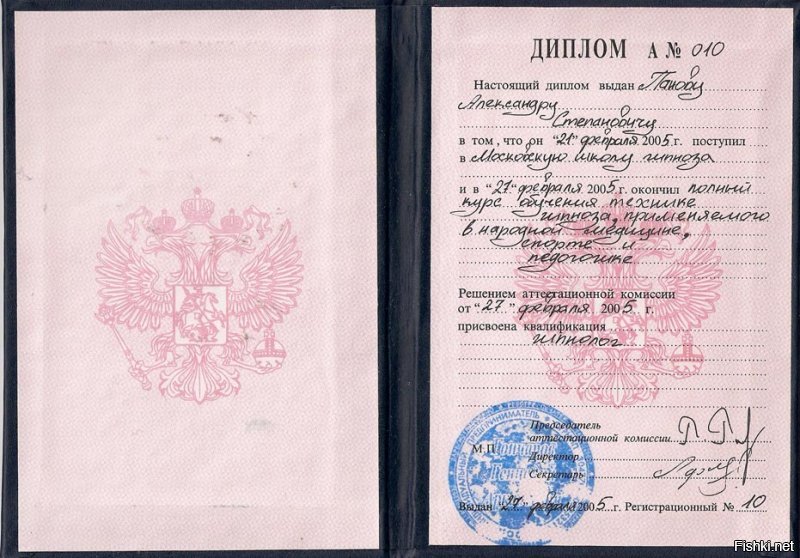 ДИПЛОМ А № 010
Настоящий диплом выдан
Александру
Степановичу
в том, что он "21" февраля 2005 г. поступил
в Московскую школу гипноза
и в "27" февраля 2005 г. окончил полный
курс обучения технике
гипноза, применяемого
в народной медицине,
спорте и
педогогике
Решением аттестационной комиссии
от "27" февраля 2005 г.
присвоена квалификация
гипнолог
Председатель
аттестационной комиссии
М П
Директор
Секретарь
Выдан "27" февраля 2005 г. Регистрационный № 10
ИНДИВИДУАЛЬНЫЙ ПРЕДПРИНИМАТЕЛЬ
Fishki.net